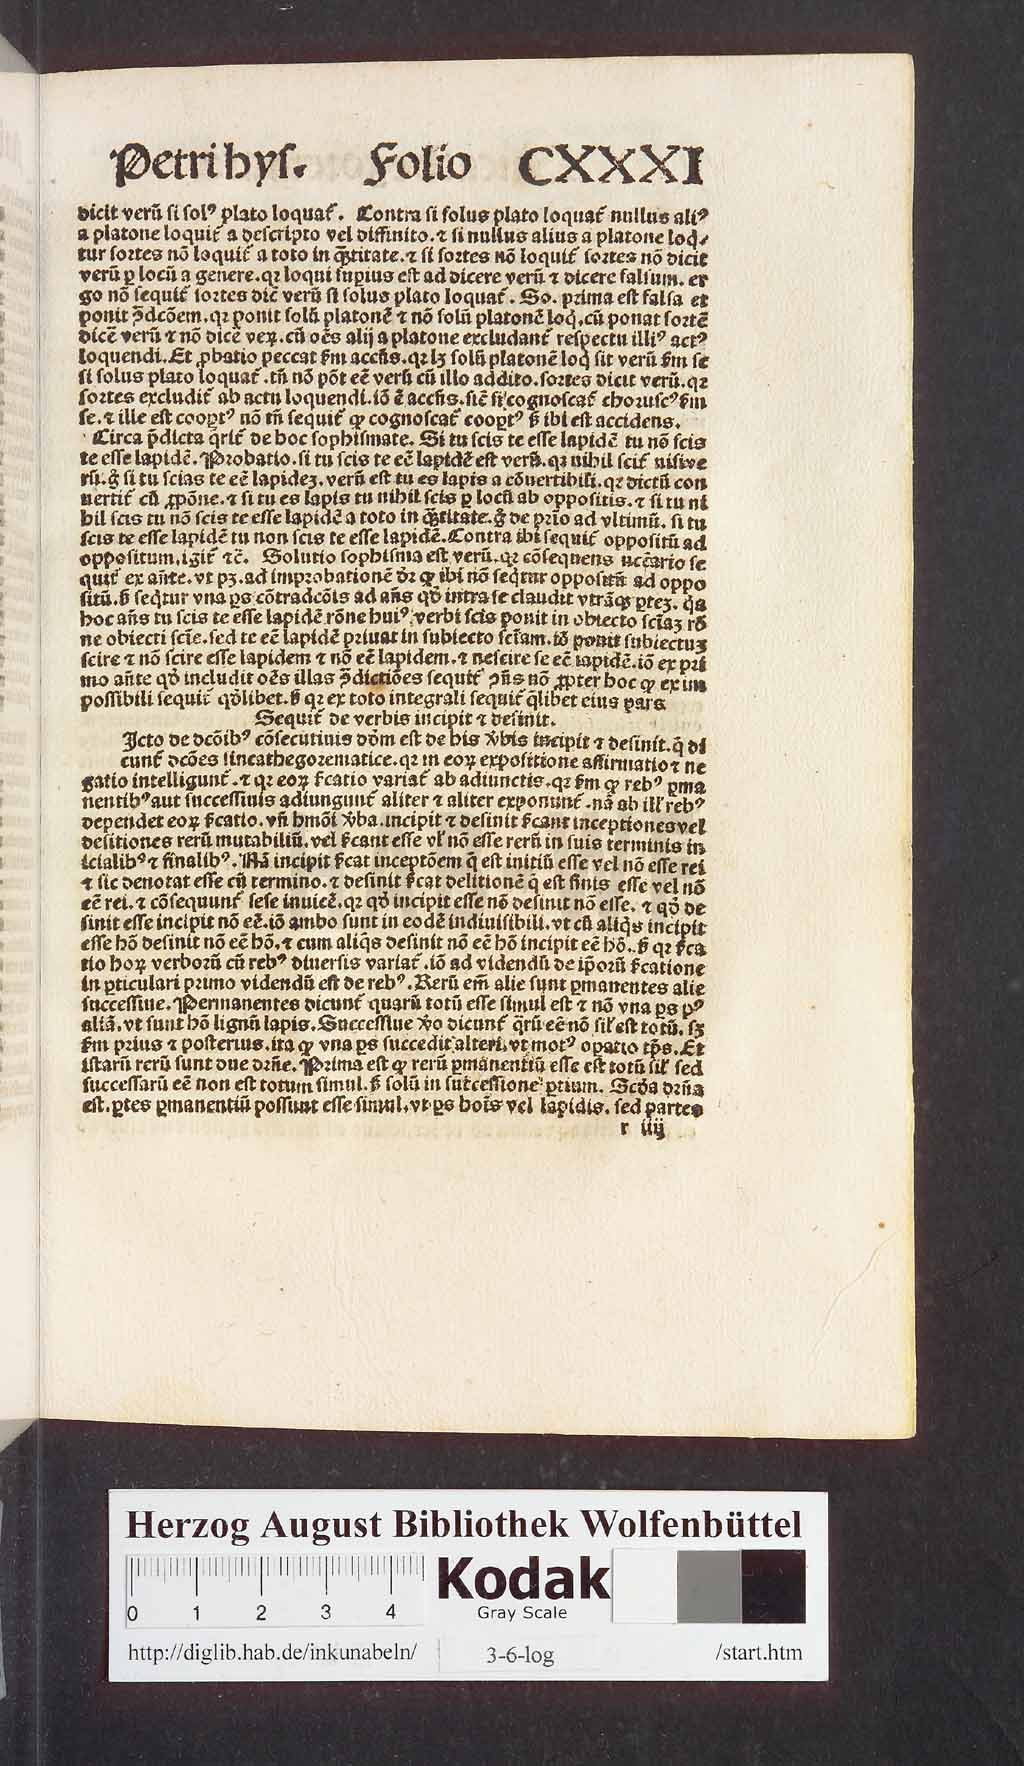 Petri hyſ. Folio CXXXI
dicit verū ſi ſolꝰ plato loquat᷑. Contra ſi ſolus plato loquat᷑ nullus aliꝰ
a platone loquit᷑ a deſcripto vel diffinito. ⁊ ſi nullus alius a platone loq̄⸗
tur ſortes nō loquit᷑ a toto in q̄ntitate. ⁊ ſi ſortes nō loquit᷑ ſortes nō dicit
verū ꝑ locū a genere. qꝛ loqui ſupius eſt ad dicere verū ⁊ dicere falſum. er
go nō ſequit᷑ ſortes dic̄ verū ſi ſolus plato loquat᷑. So. prima eſt falſa et
ponit p̄dcōem. qꝛ ponit ſolū platonē ⁊ nō ſolū platonē loq̇. cū ponat ſortē
dicē verū ⁊ nō dicē veꝝ. cū oēs alij a platone excludant᷑ reſpectu illiꝰ actꝰ
loquendi. Et ꝓbatio peccat ẜm accn̄s. qꝛ lꝫ ſolū platonē loq̇ ſit verū ẜm ſe
ſi ſolus plato loquat᷑. tn̄ nō pōt eē verū cū illo addito. ſortes dicit verū. qꝛ
ſortes excludit᷑ ab actu loquendi. iō ē accn̄s. ſic̄ ſi cognoſcat᷑ choruſcꝰ ẜm
ſe. ⁊ ille eſt cooꝑtꝰ nō tn̄ ſequit᷑ ꝙ cognoſcat᷑ cooꝑtꝰ ẜ ibi eſt accidens.
Circa p̄dicta q̄rit᷑ de hoc ſophiſmate. Si tu ſcis te eſſe lapidē tu nō ſcis
te eſſe lapidē. Probatio. ſi tu ſcis te eē lapidē eſt verū. qꝛ nihil ſcit᷑ niſi ve
rū. g̊ ſi tu ſcias te eē lapidez. verū eſt tu es lapis a cōuertibili. qꝛ dictū con
uertit᷑ cū ꝓpōne. ⁊ ſi tu es lapis tu nihil ſcis ꝑ locū ab oppoſitis. ⁊ ſi tu ni
hil ſcis tu nō ſcis te eſſe lapidē a toto in q̄ntitate. g̊ de prīo ad vltimū. ſi tu
ſcis te eſſe lapidē tu non ſcis te eſſe lapidē. Contra ibi ſequit᷑ oppoſitū ad
oppoſitum. igit᷑ ⁊c̄. Solutio ſophiſma eſt verū. qꝛ cōſequens nccēario ſe
quit᷑ ex an̄te. vt pꝫ. ad improbationē dꝛ̄ ꝙ ibi nō ſeq̇tur oppoſitū ad oppo
ſitū. ẜ ſeq̇tur vna ꝑs cōtradcōis ad an̄s qḋ intra ſe claudit vtrāqꝫ ꝑteꝫ. q̇a
hoc an̄s tu ſcis te eſſe lapidē rōne huiꝰ verbi ſcis ponit in obiecto ſciāꝫ rō
ne obiecti ſciē. ſed te eē lapidē priuat in ſubiecto ſciam. iō ponit ſubiectuꝫ
ſcire ⁊ nō ſcire eſſe lapidem ⁊ nō eē lapidem. ⁊ neſcire ſe eē lapidē. iō ex pri
mo an̄te qḋ includit oēs illas ꝯ̄dictiōes ſequit᷑ ꝯn̄s nō ꝓpter hoc ꝙ ex im
poſſibili ſequit᷑ qḋlibet. ẜ qꝛ ex toto integrali ſequit᷑ q̄libet eius pars
Sequit᷑ de verbis incipit ⁊ deſinit.
Icto de dcōibꝰ cōſecutiuis dōm eſt de his v̄bis incipit ⁊ deſinit. q̄ di
cunt᷑ dcōes ſincathegorematice. qꝛ in eoꝝ expoſitione affirmatio ⁊ ne
gatio intelligunt᷑. ⁊ qꝛ eoꝝ ſ̄catio variat᷑ ab adiunctis. qꝛ ẜm ꝙ rebꝰ ꝑma
nentibꝰ aut ſucceſſiuis adiungunt᷑ aliter ⁊ aliter exponunt᷑. nā ab ill᷑ rebꝰ
dependet eoꝝ ſ̄catio. vn̄ hmōi v̄ba. incipit ⁊ deſinit ſ̄cant inceptiones vel
deſitiones rerū mutabiliū. vel ſ̄cant eſſe vl᷑ nō eſſe rerū in ſuis terminis in
icialibꝰ ⁊ finalibꝰ. Nā incipit ſ̄cat inceptōem q̄ eſt initiū eſſe vel nō eſſe rei
⁊ ſic denotat eſſe cū termino. ⁊ deſinit ſ̄cat deſitionē q̄ eſt finis eſſe vel nō
eē rei. ⁊ cōſequunt᷑ ſeſe inuicē. qꝛ qḋ incipit eſſe nō deſinit nō eſſe. ⁊ qḋ de
ſinit eſſe incipit nō eē. iō ambo ſunt in eodē indiuiſibili. vt cū aliq̇s incipit
eſſe hō deſinit nō eē hō. ⁊ cum aliq̇s deſinit nō eē hō incipit eē hō. ẜ qꝛ ſ̄ca
tio hoꝝ verborū cū rebꝰ diuerſis variat᷑. iō ad videndū de ip̄orū ſ̄catione
in ꝑticulari primo videndū eſt de rebꝰ. Rerū em̄ alie ſunt ꝑmanentes alie
ſucceſſiue. Permanentes dicunt᷑ quarū totū eſſe ſimul eſt ⁊ nō vna ꝑs pꝰ
aliā. vt ſunt hō lignū lapis. Succeſſiue v̄o dicunt᷑ q̄rū eē nō ſil᷑ eſt totū. ſꝫ
ẜm prius ⁊ poſterius. ita ꝙ vna ꝑs ſuccedit alteri. vt motꝰ oꝑatio tp̄s. Et
iſtarū rerū ſunt due dr̄ne. Prima eſt ꝙ rerū ꝑmanentiū eſſe eſt totū ſil᷑ ſed
ſucceſſarū eē non eſt totum ſimul. ẜ ſolū in ſucceſſione ꝑtium. Scḋa dr̄na
eſt. ꝑtes ꝑmanentiū poſſunt eſſe ſimul. vt ꝑs hoīs vel lapidis. ſed partes
r iiij
Herzog August Bibliothek Wolfenbüttel
0 1 2 3 4
Kodak
Gray Scale
http://diglib.hab.de/inkunabeln/ 3-6-log /start.htm